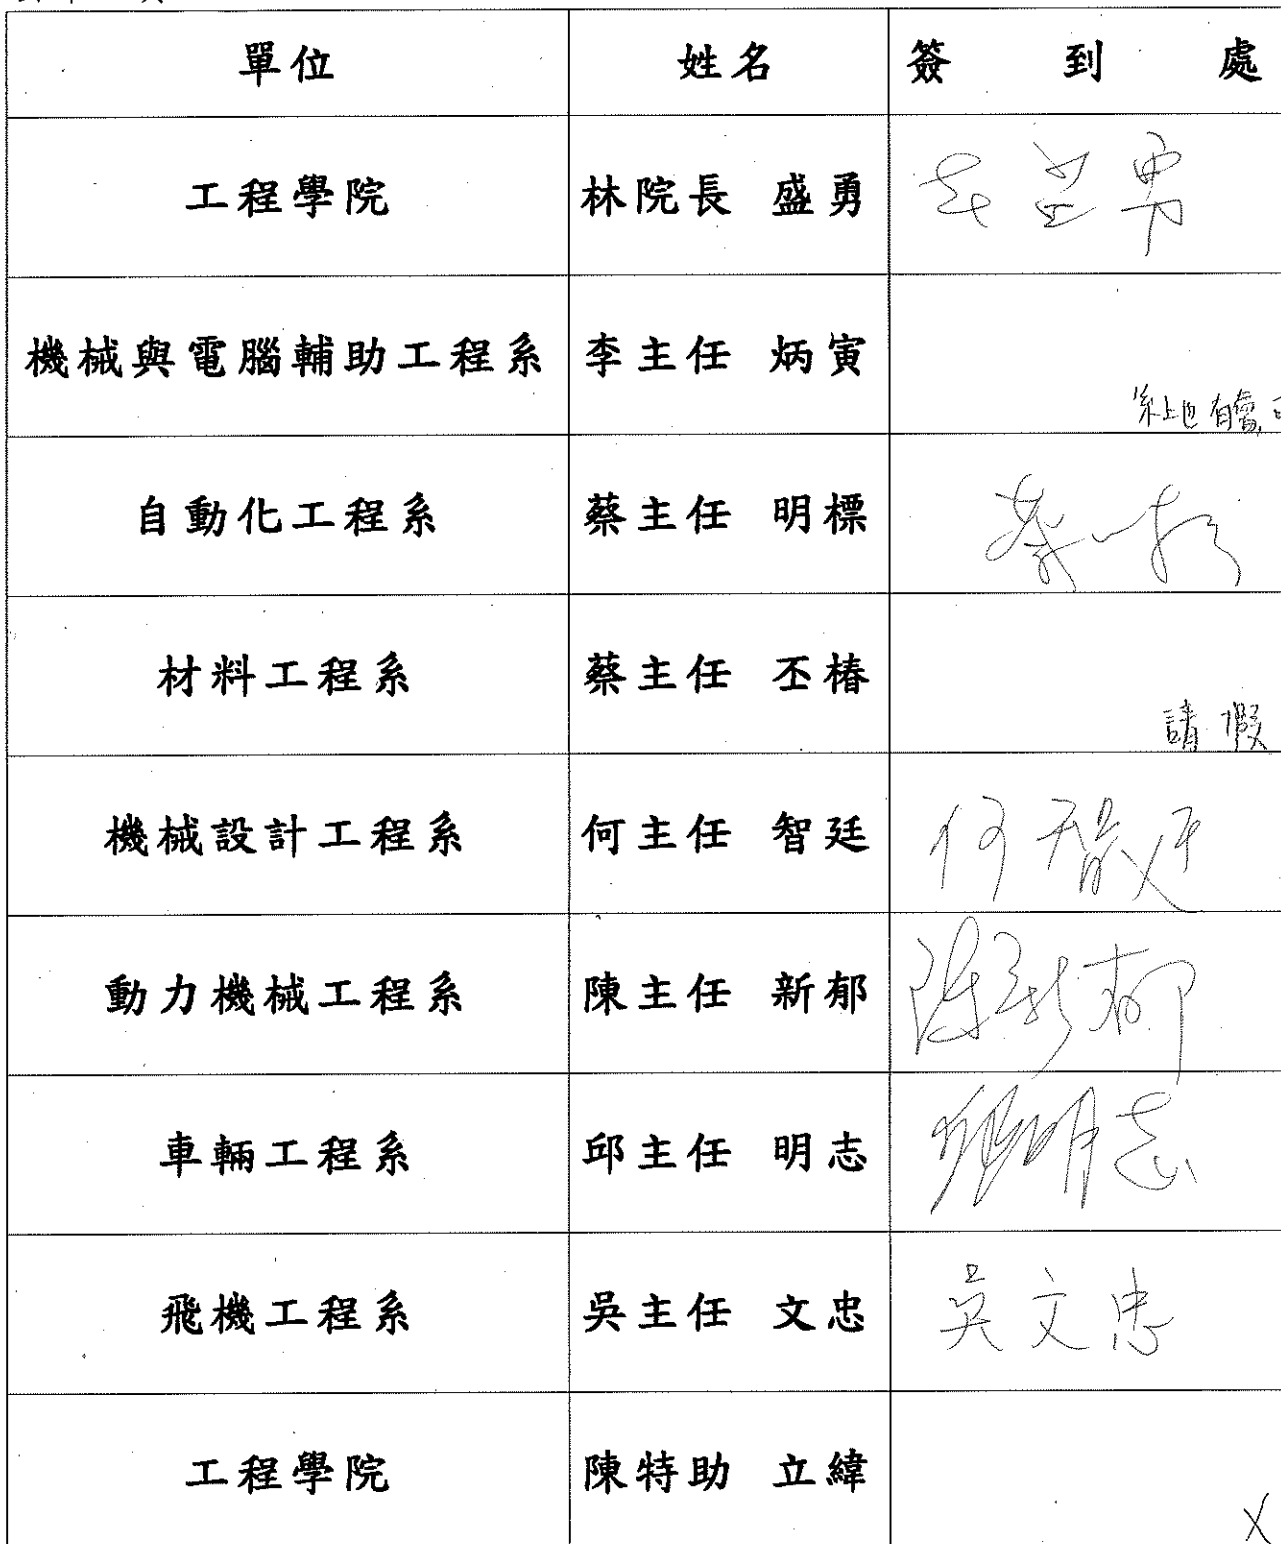 單位 姓名 簽到處
工程學院 林院長 盛勇
機械與電腦輔助工程系 李主任 炳寅
系上也有會
自動化工程系 蔡主任 明標 蔡
材料工程系 蔡主任 丕椿
請假
機械設計工程系 何主任 智廷 何智廷
動力機械工程系 陳主任 新郁 陳新郁
車輛工程系 邱主任 明志 邱明志
飛機工程系 吳主任 文忠 吳文忠
工程學院 陳特助 立緯
X